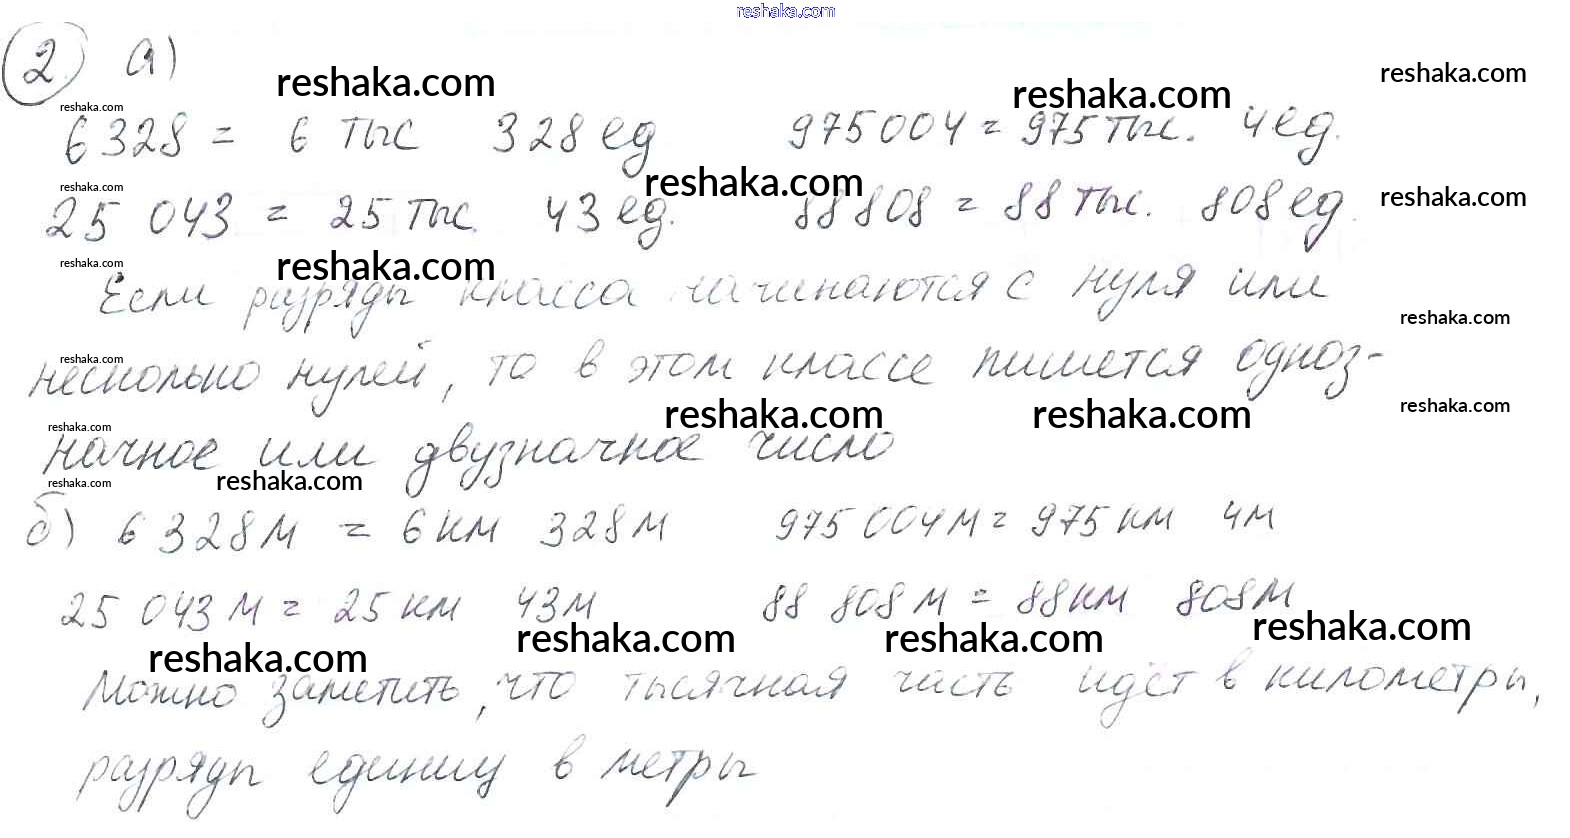 reshaka.com
2 а)
reshaka.com reshaka.com reshaka.com
reshaka.com
6 328 = 6 тыс 328 ед 975 004 = 975 тыс. 4 ед.
reshaka.com reshaka.com reshaka.com
25 043 = 25 тыс. 43 ед. 88 808 = 88 тыс. 808 ед.
reshaka.com reshaka.com
Если разряды класса начинаются с нуля или
reshaka.com
reshaka.com
несколько нулей, то в этом классе пишется одноз-
reshaka.com reshaka.com reshaka.com
reshaka.com
начное или двузначное число
reshaka.com reshaka.com
б) 6 328 м = 6 км 328 м 975 004 м = 975 км 4 м
25 043 м = 25 км 43 м 88 808 м = 88 км 808 м
reshaka.com reshaka.com reshaka.com reshaka.com
Можно заметить, что тысячная часть идёт в километры,
разряды единиц в метры